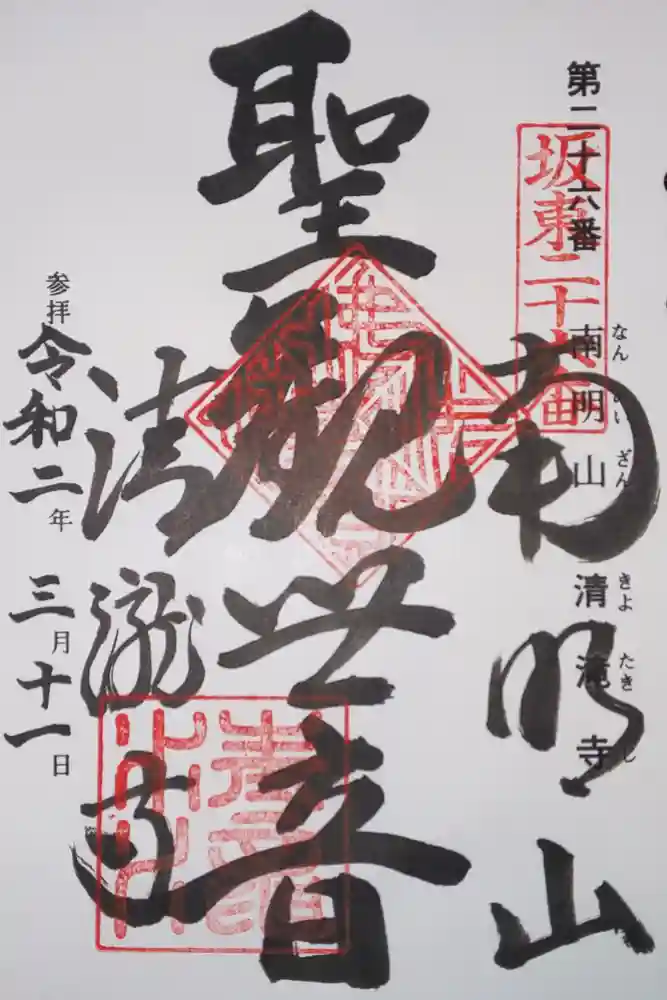 第二十六番
南明山
なんめいざん
清滝寺
きよたきじ
坂東二十六番
南明山
聖観世音
清瀧寺
参拝
令和二年
三月十一日